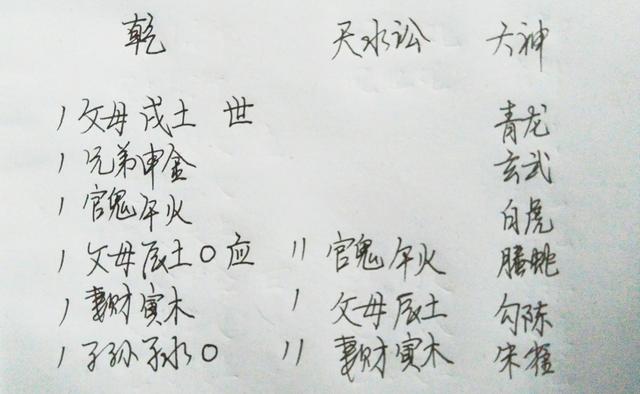 乾 天水讼 六神
1 父母戌土 世 青龙
1 兄弟申金 玄武
1 官鬼午火 白虎
1 父母辰土〇应 11 官鬼午火 腾蛇
1 妻财寅木 1 父母辰土 勾陈
1 子孙子水〇 11 妻财寅木 朱雀